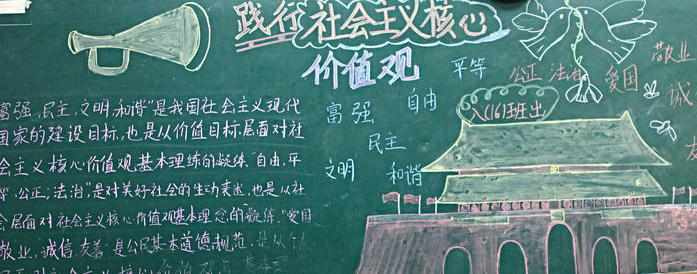 践行社会主义核心
价值观
平等
公正 法治
爱国
敬业
诚
富强
自由
八(16)班出
民主
文明
和谐
富强,民主,文明,和谐"是我国社会主义现代
国家的建设目标,也是从价值目标层面对社
会主义核心价值观基本理练的凝练."自由,平
等,公正,法治",是对美好社会的生动表述,也是从社
会层面对社会主义核心价值观基本理念的凝练."爱国
敬业,诚信,友善"是公民基本道德规范,是从个